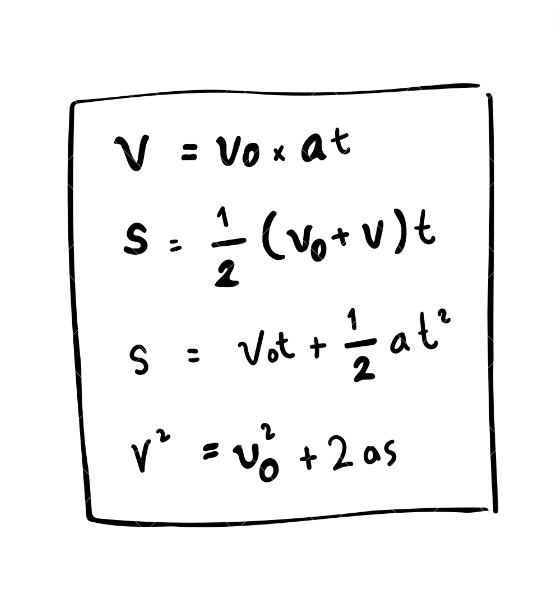 V = V₀ × at
S = 1/2 (V₀ + V)t
S = V₀t + 1/2 at²
V² = V₀² + 2as